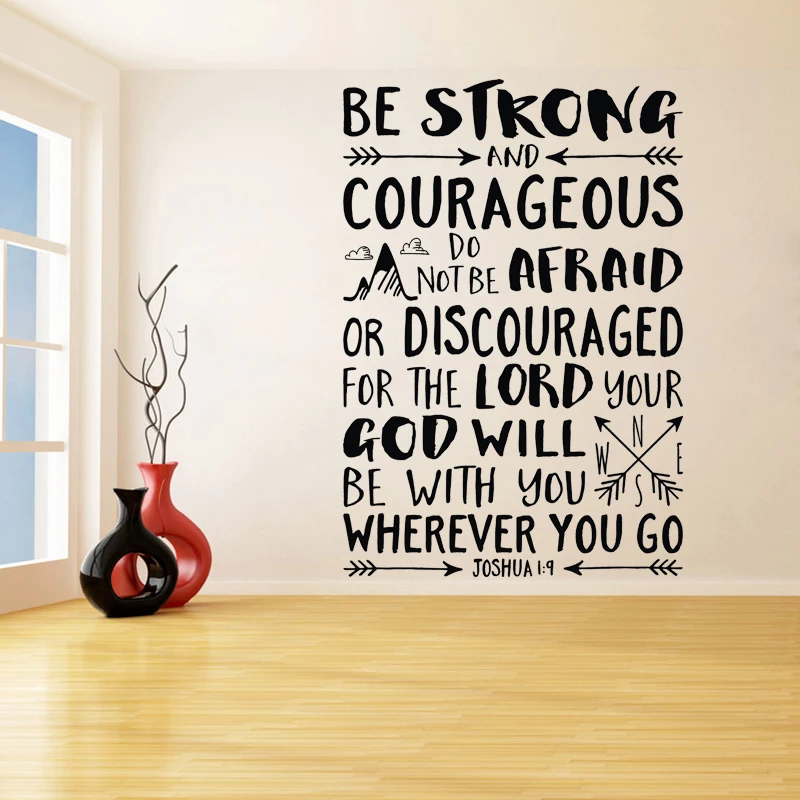 BE STRONG
AND
COURAGEOUS
DO
NOT BE AFRAID
OR DISCOURAGED
FOR THE LORD YOUR
GOD WILL
BE WITH YOU
N
W E
S
WHEREVER YOU GO
JOSHUA 1:9